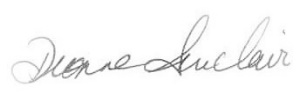 Dionne Sinclair